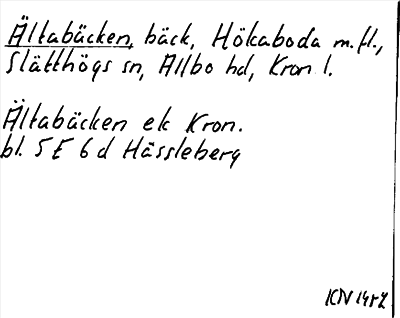 Ältabäcken, bäck, Hökaboda m.fl.,
Slätthögs sn, Allbo hd, Kron. l.
Ältabäcken ek Kron.
bl. 5 E 6 d Hässleberg